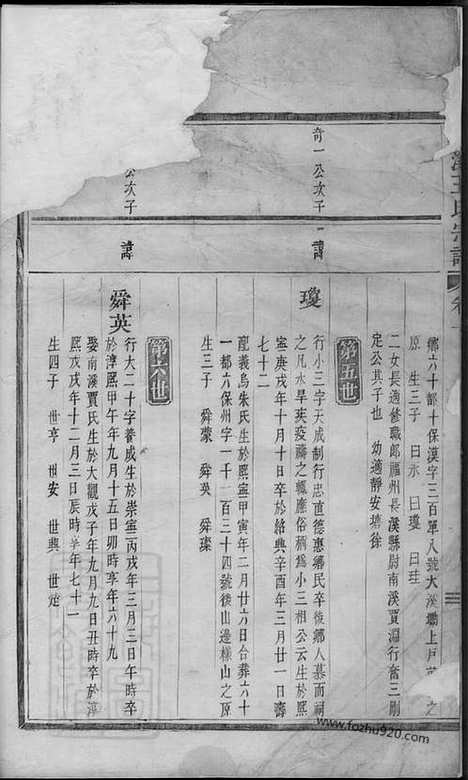 王氏宗譜 卷一
鄉六十都十保漢字三百單八號大溪壩上戶
原 生三子 曰永 曰瓊 曰珪
二女長適修職郎福州長溪縣尉南溪賈淵行奮三剛
定公其子也 幼適靜安塘徐
第五世
奇一公次子 諱
瓊
行小三字天成制行忠直德惠鄉民卒後鄉人慕而祠
之凡水旱疾疫禱之輒應俗稱為小三相公云生於熙
寧庚戌年十月十日卒於紹興辛酉年三月廿一日壽
七十二
配義烏朱氏生於熙寧甲寅年二月廿六日合葬六十
一都六保州字一千二百三十四號後山邊樣山之原
生三子 舜蒙 舜英 舜瑧
第六世
公次子 諱
舜英
行大二十字養成生於崇寧丙戌年三月三日午時卒
於淳熙甲午年九月十五日卯時享年六十九
娶南溪賈氏生於大觀戊子年九月九日丑時卒於淳
熙戊戌年十二月三日辰時享年七十一
生四子 世亨 世安 世興 世延
www.fozhu920.com